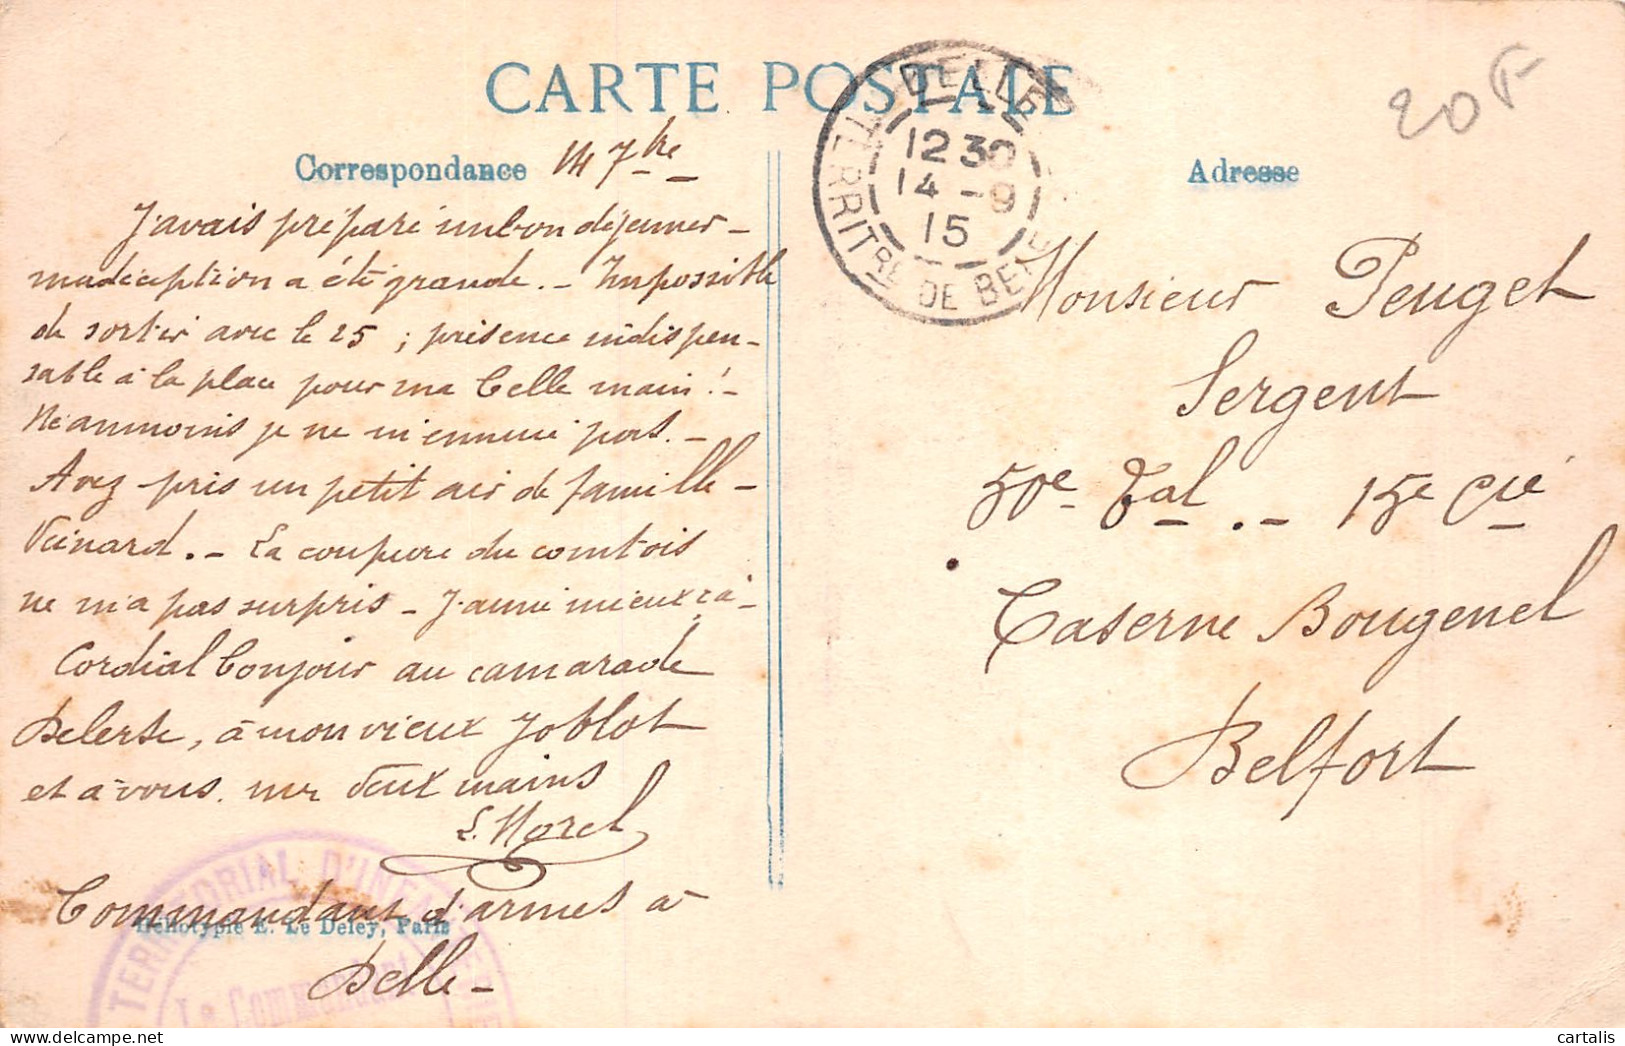 CARTE POSTALE
20F
Correspondance 14 7bre
J'avais préparé un bon déjeuner –
ma déception a été grande. – Impossible
de sortir avec le 25 ; présence indispen-
sable à la place pour ma belle main ! –
Néanmoins je ne m'ennuie pas. –
Avez pris un petit air de famille –
. – La coupure du comtois
ne m'a pas surpris – J'aime mieux çà –
Cordial bonjour au camarade
Delerse, à mon vieux Joblot
et à vous. deux mains
L. Morel
Commandant d'armes à
Delle –
Héliotypie E. Le Deley, Paris
TERRITORIAL D'INFANTERIE
Le Commandant
DELLE
12 30
14 -9
15
TERRITRE DE BELF
Adresse
Monsieur Peuget
Sergent
50e Tal. – 15e Cie
Caserne Bougenel
Belfort
cartalis